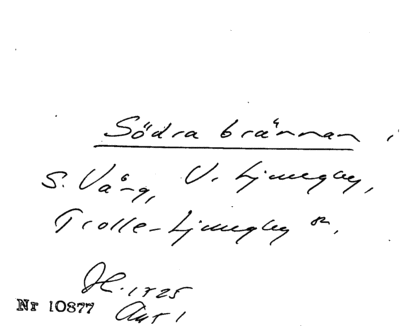 Södra brännan i
S. Vång, V. Ljungby,
Trolle-Ljungby sn.
1725
Nr 10877 Akt 1